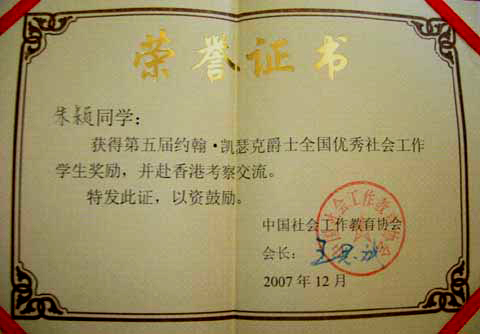 荣誉证书
朱颖同学：
获得第五届约翰·凯瑟克爵士全国优秀社会工作
学生奖励，并赴香港考察交流。
特发此证，以资鼓励。
中国社会工作教育协会
会长：
2007年12月